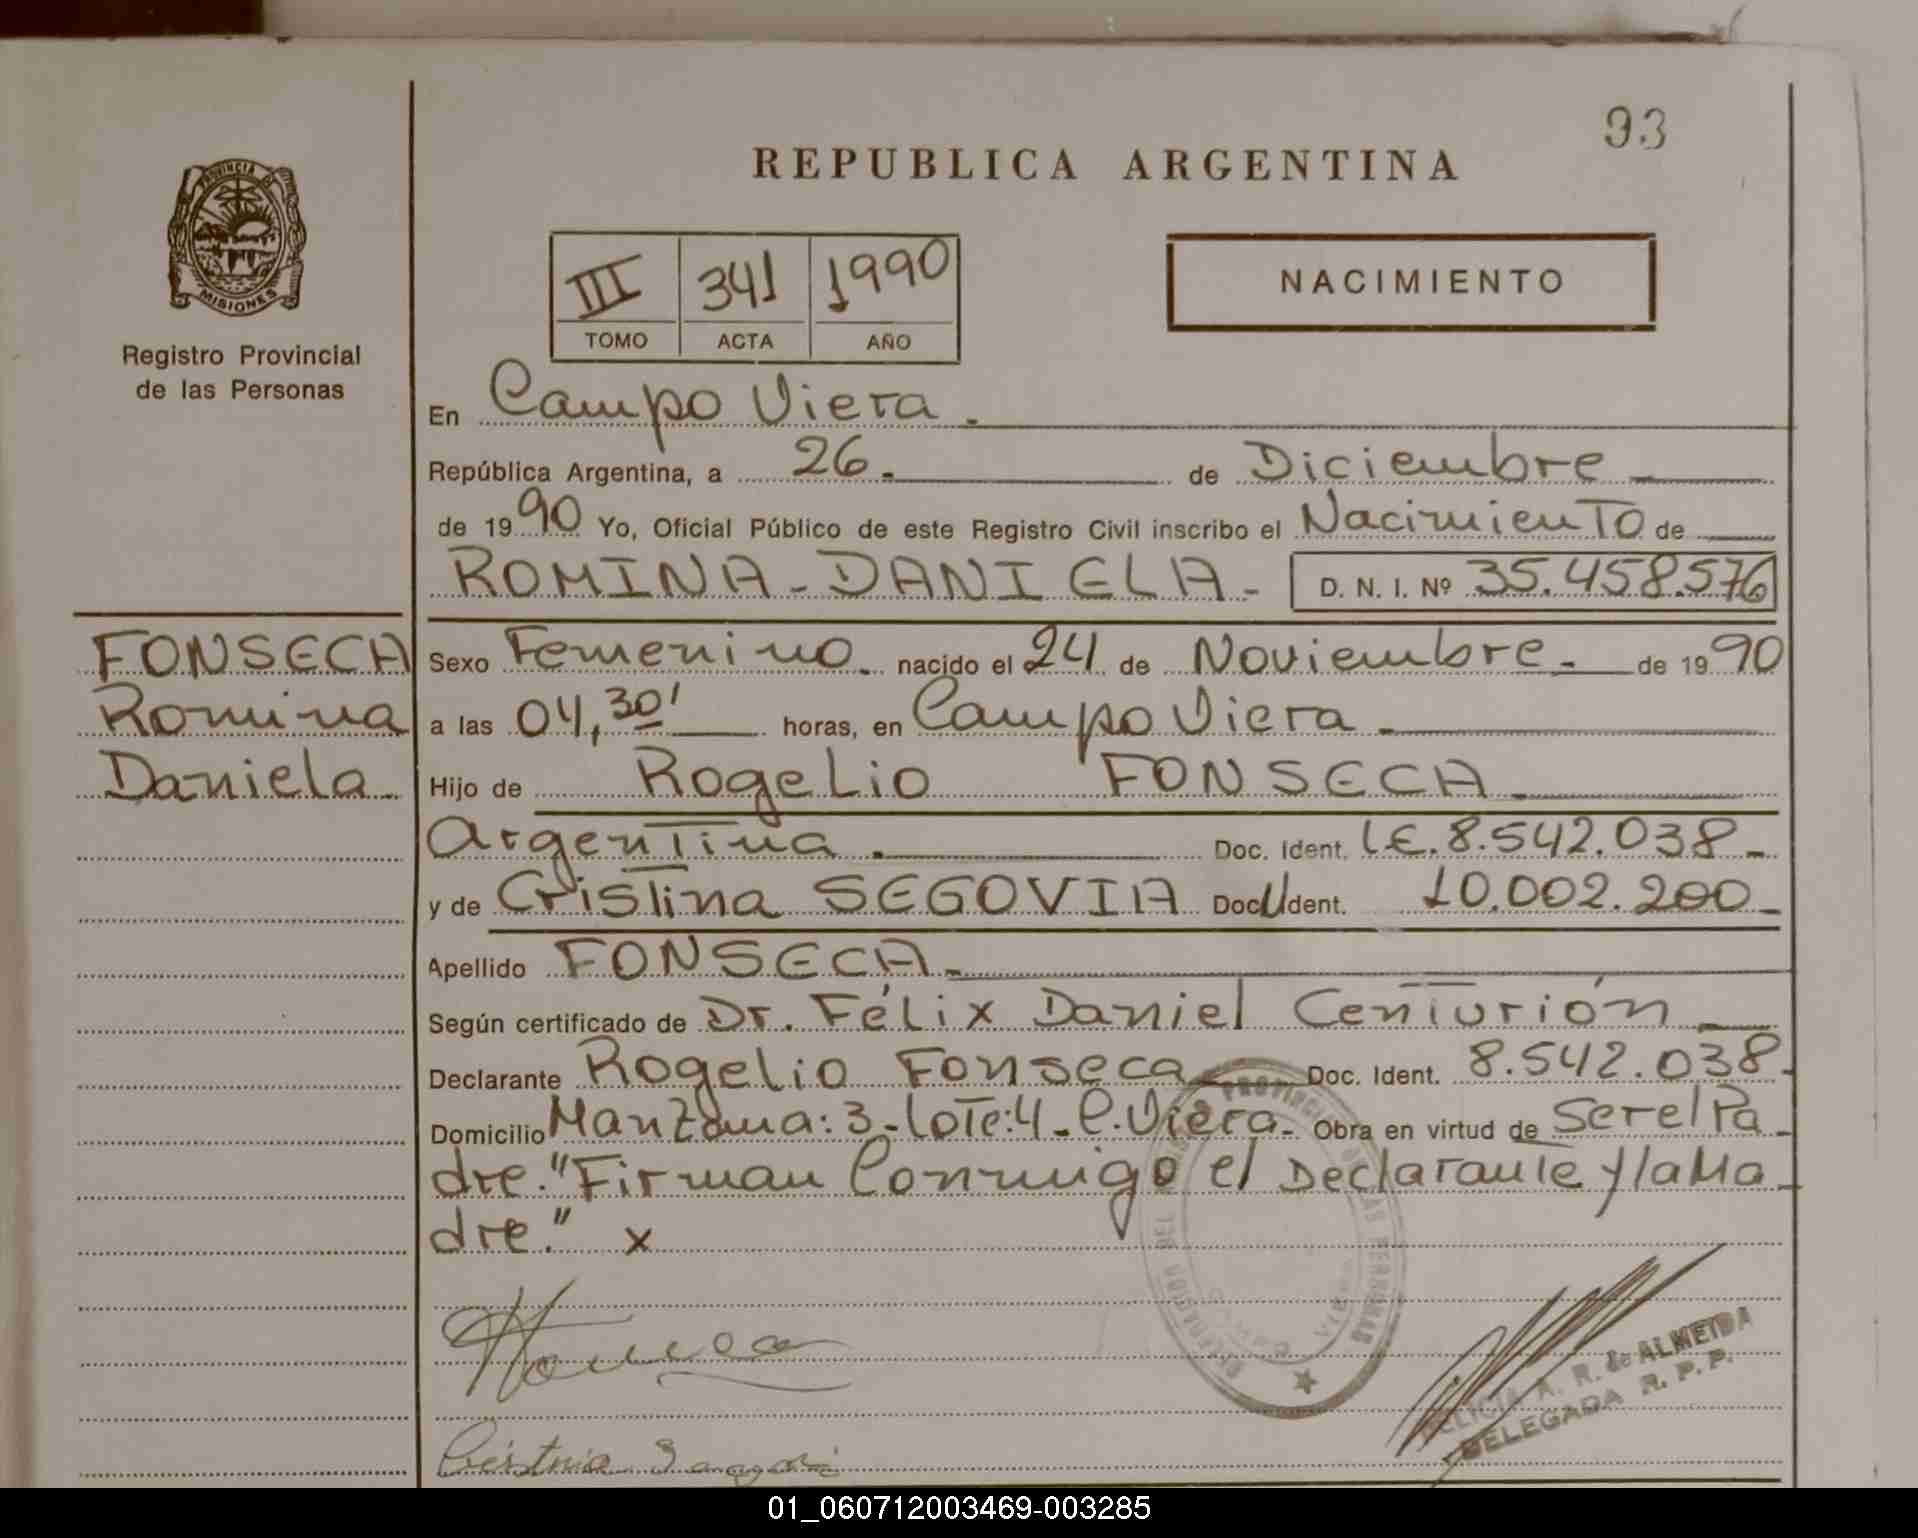 93
REPUBLICA ARGENTINA
PROVINCIA DE
MISIONES
Registro Provincial
de las Personas
III 341 1990
TOMO ACTA AÑO
NACIMIENTO
En Campo Viera.
República Argentina, a 26. de Diciembre
de 1990 Yo, Oficial Público de este Registro Civil inscribo el Nacimiento de
ROMINA-DANIELA- D. N. I. Nº 35.458.576
FONSECA
Romina
Daniela.
Sexo Femenino. nacido el 24 de Noviembre. de 1990
a las 04,30' horas, en Campo Viera
Hijo de Rogelio FONSECA
Argentina. Doc. Ident. L.E. 8.542.038
y de Cristina SEGOVIA Doc U Ident. 10.002.200
Apellido FONSECA
Según certificado de Dr. Félix Daniel Centurión
Declarante Rogelio Fonseca Doc. Ident. 8.542.038.
Domicilio Manzana: 3-Lote:4-C.Viera- Obra en virtud de Ser el Pa
dre. "Firman Conmigo el Declarante y la Ma
dre." x
PROVINCIAL DE LAS PERSONAS
DELEGACION
A. R. de ALMEIDA
DELEGADA R. P. P.
01_060712003469-003285